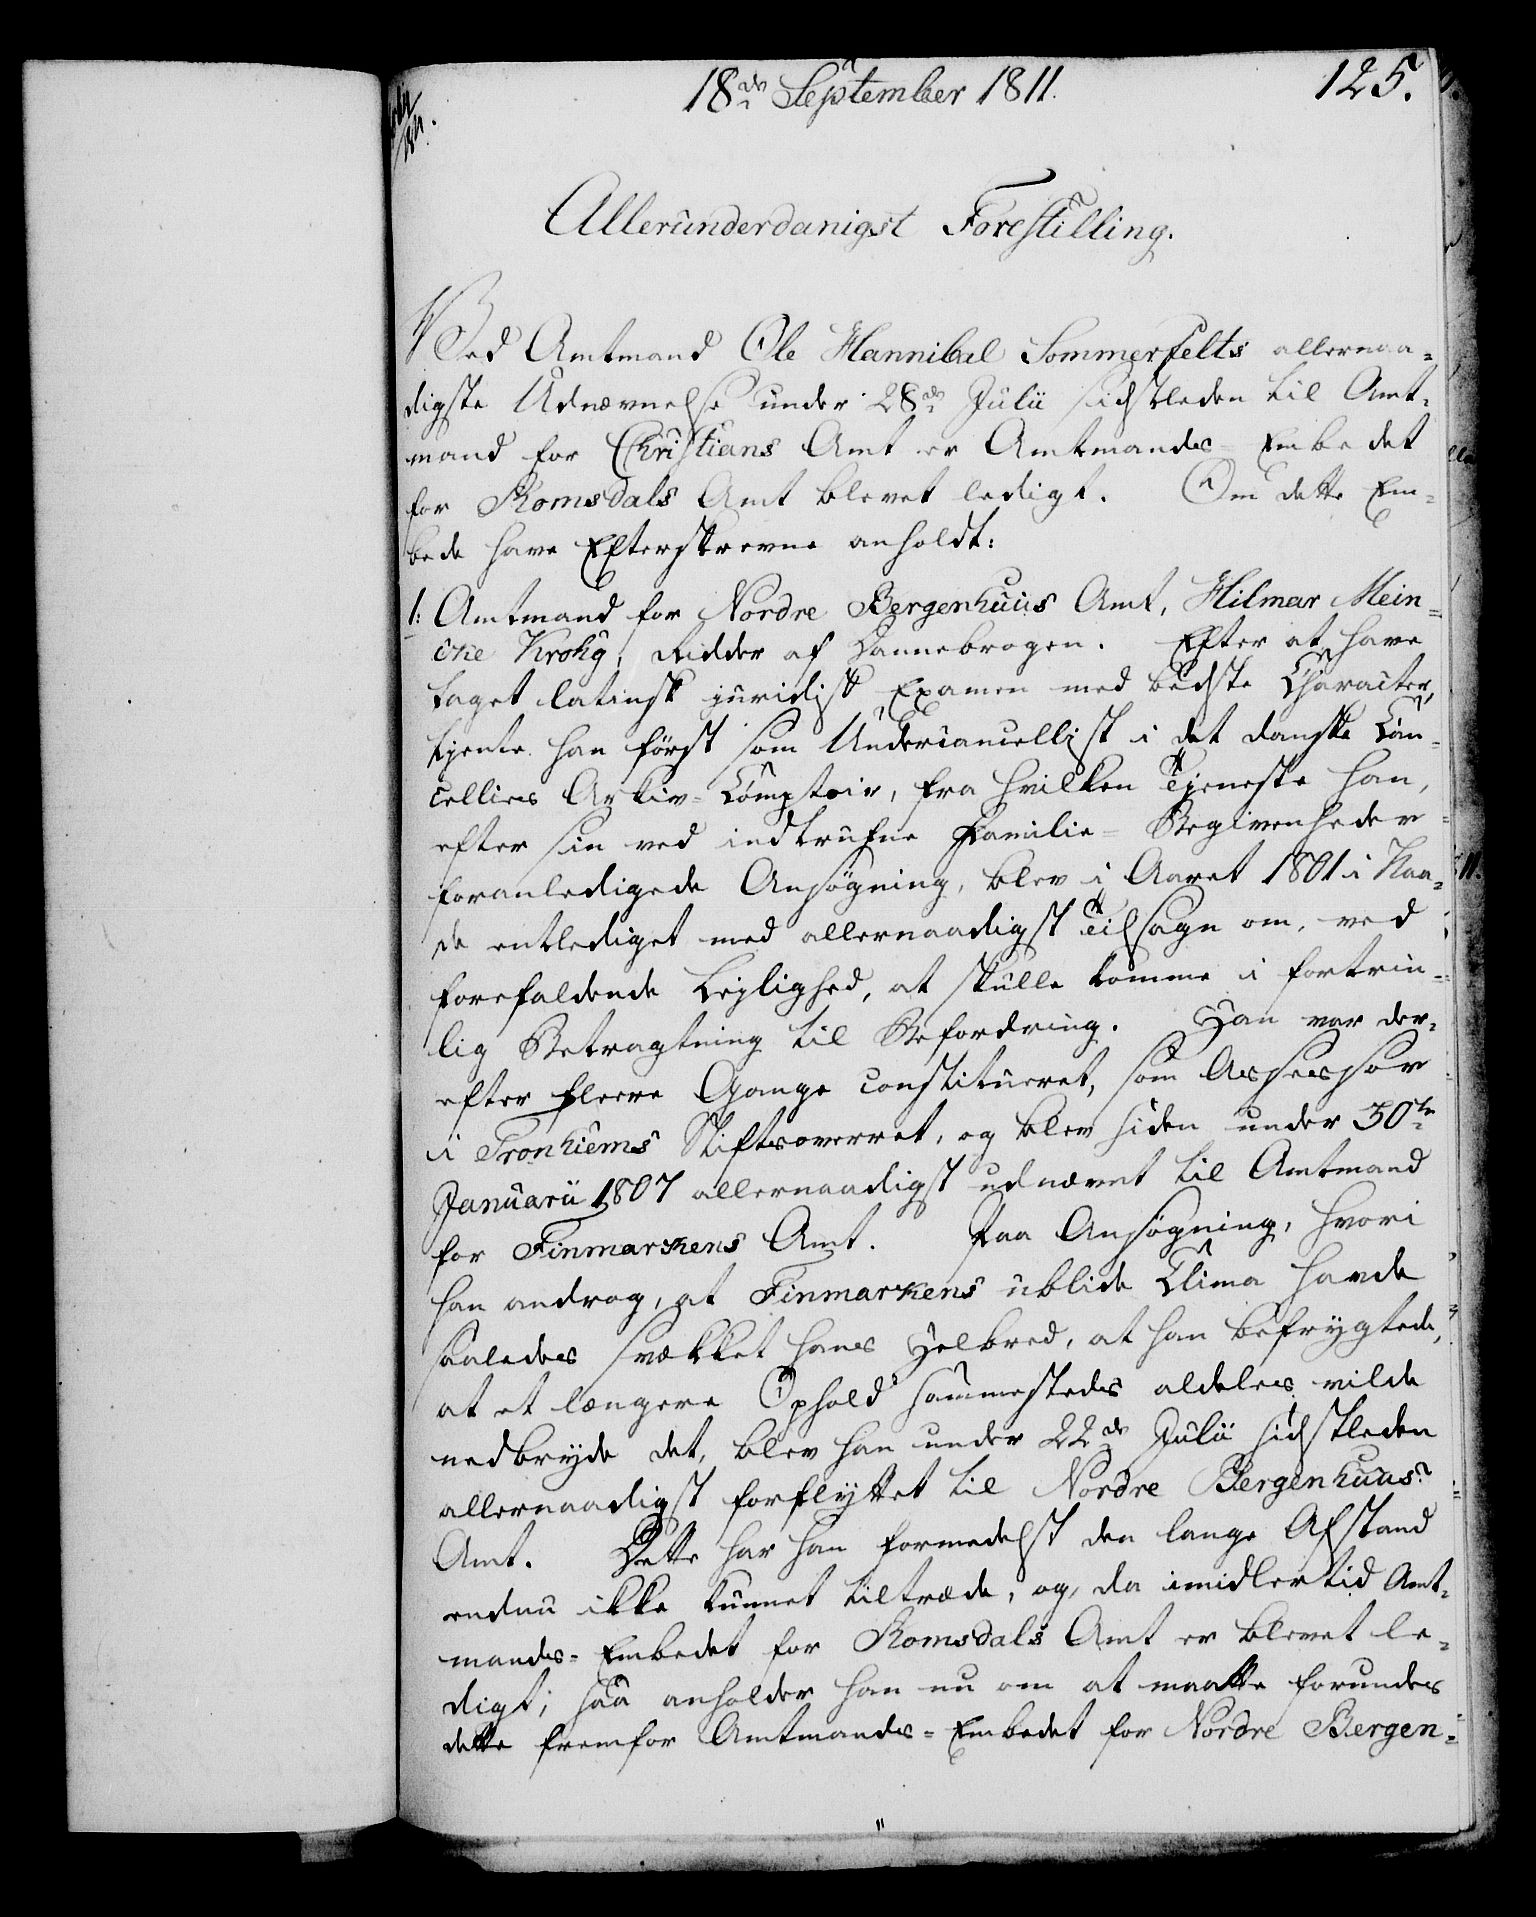 18de September 1811.
125.
Allerunderdanigst Forestilling.
Ved Amtmand Ole Hannibal Sommerfelts allernaa-
digste Udnævnelse under 28de Julii sidstleden til Amt-
mand for Christians Amt er Amtmands-Embedet
for Romsdals Amt blevet ledigt. Om dette Em-
bede have Efterskrevne anholdt:
1: Amtmand for Nordre Bergenhuus Amt, Hilmar Mein-
cke Krohg, Ridder af Dannebrogen. Efter at have
taget latinsk juridisk Examen med bedste Character,
tjente han først som Undercancellist i det danske Can-
cellies Arkiv-Comptoir, fra hvilken Tjeneste han,
efter sin ved indtrufne Familie-Begivenheder
foranledigede Ansøgning, blev i Aaret 1801 i Naa-
de entlediget med allernaadigst Tilsagn om, ved
forefaldende Lejlighed, at skulle komme i fortrin-
lig Betragtning til Befordring. Han var der-
efter fleere Gange constitueret, som Assessor
i Tronhiems Stiftsoverret, og blev siden under 30te
Januarii 1807 allernaadigst udnævnt til Amtmand
for Finmarkens Amt. Paa Ansøgning, hvori
han androg, at Finmarkens ublide Clima havde
saaledes svækket hans Helbred, at han befrygtede,
at et længere Ophold sammestedes aldeles vilde
nedbryde det, blev han under 22de Julii sidstleden
allernaadigst forflyttet til Nordre Bergenhuus
Amt. Dette har han formedelst den lange Afstand
endnu ikke kunnet tiltræde, og, da imidlertid Amt-
mands-Embedet for Romsdals Amt er blevet le-
digt; saa anholder han nu om at maatte forundes
dette fremfor Amtmands-Embedet for Nordre Bergen-
"